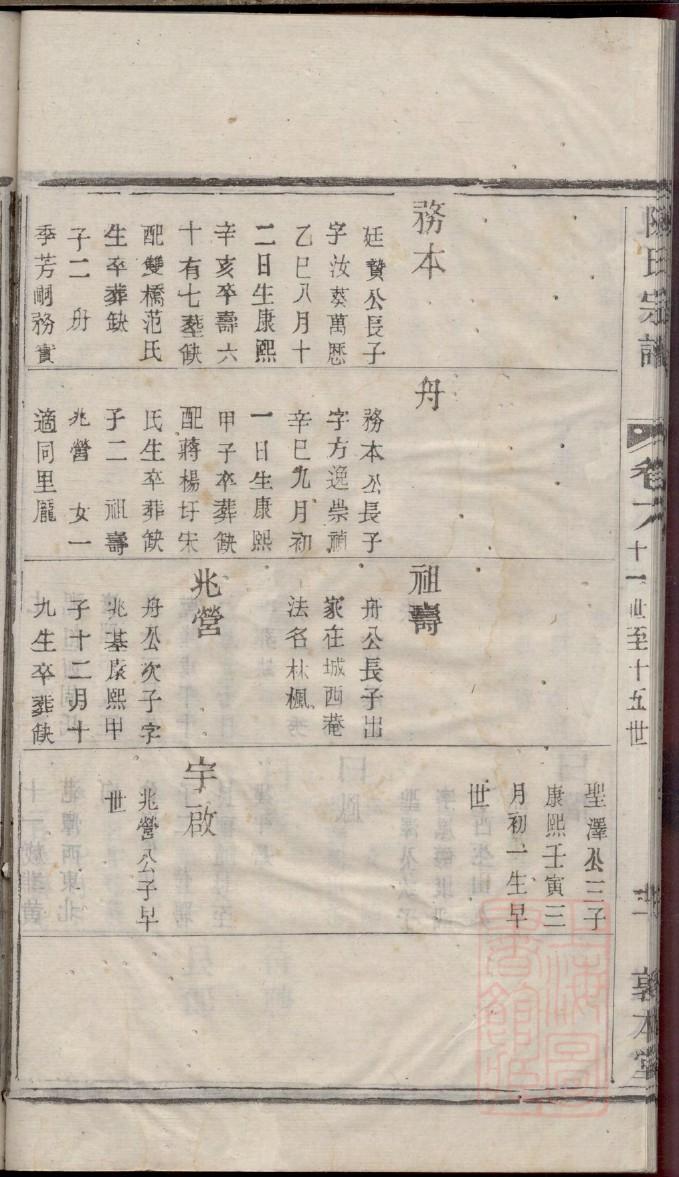 務本
廷贊公長子
字汝葵萬懕
乙巳八月十
二日生康熙
辛亥卒壽六
十有七塟缺
配雙橋范氏
生卒葬缺
子二 舟
季芳嗣務實
舟
務本公長子
字方逸崇禎
辛巳九月初
一日生康熙
甲子卒葬缺
配蔣楊圩宋
氏生卒葬缺
子二 祖壽
兆營 女一
適同里龐
祖壽
舟公長子出
家在城西菴
法名林楓
兆營
舟公次子字
兆基康熙甲
子十二月十
九生卒葬缺
聖澤公三子
康熙壬寅三
月初一生早
世
宇啟
兆營公子早
世
氏宗譜
卷
十一世至十五世
敦本堂
上海圖書館